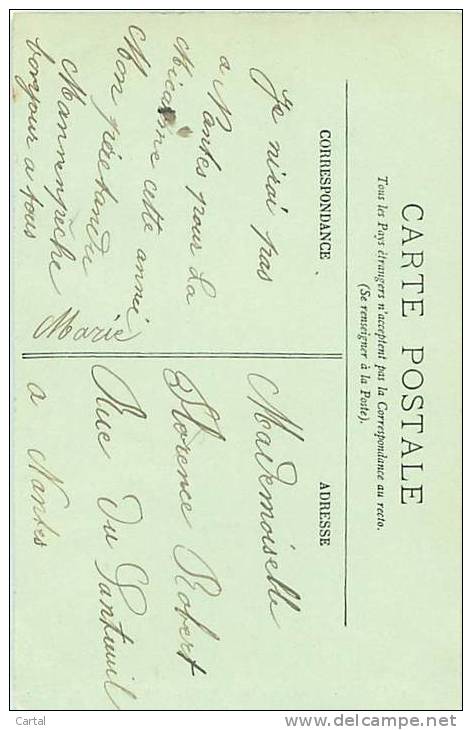 CARTE POSTALE
Tous les Pays étrangers n'acceptent pas la Correspondance au recto.
(Se renseigner à la Poste).
CORRESPONDANCE
Je n'irai pas
a Nantes pour La
Micareme cette anné
Mon père tandu
Mannenpèche
bonjour a tous
Marie
ADRESSE
Mademoiselle
Florence Robert
Rue Du Santeuil
a Nantes
Cartal
delcampe.net